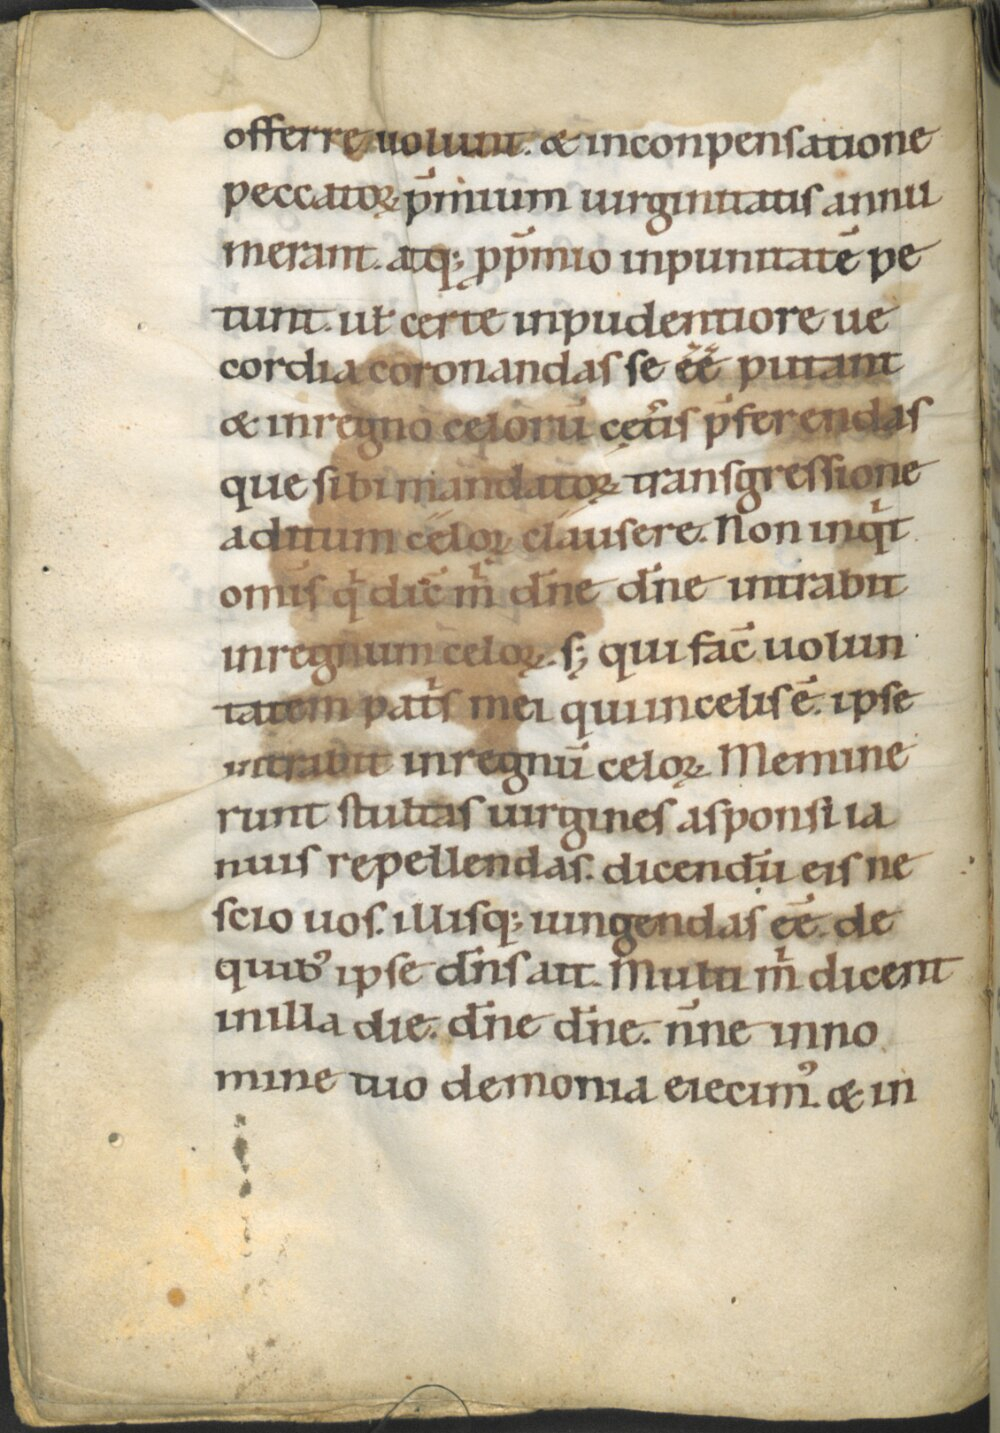 offerre uolunt. & inconpensatione
peccatoꝝ p̄mium uirginitatis annu
merant. atq; ꝓp̄mio inpunitatē pe
tunt. uł certe inpudentiore ue
cordia coronandas se ēē putant
& inregno celorū cęt̉is p̄ferendas
que sibi mandatoꝝ transgressione
aditum celoꝝ clausere. Non inqͥt
om̄is qͥ dic̄ m̄ dn̄e dn̄e intrabit
inregnum celoꝝ. s; qui fac̄ uolun
tatem patͥs mei quiincelis ē. ipse
intrabit inregnū celoꝝ. Memine
runt stultas uirgines asponsi ia
nuis repellendas. dicendū eis ne
scio uos. illisq; iungendas ēē. de
quibꝰ ipse dn̄s ait. Multi mͥ dicent
inilla die. dn̄e dn̄e. nn̄e inno
mine tuo demonia eiecimꝰ. & in